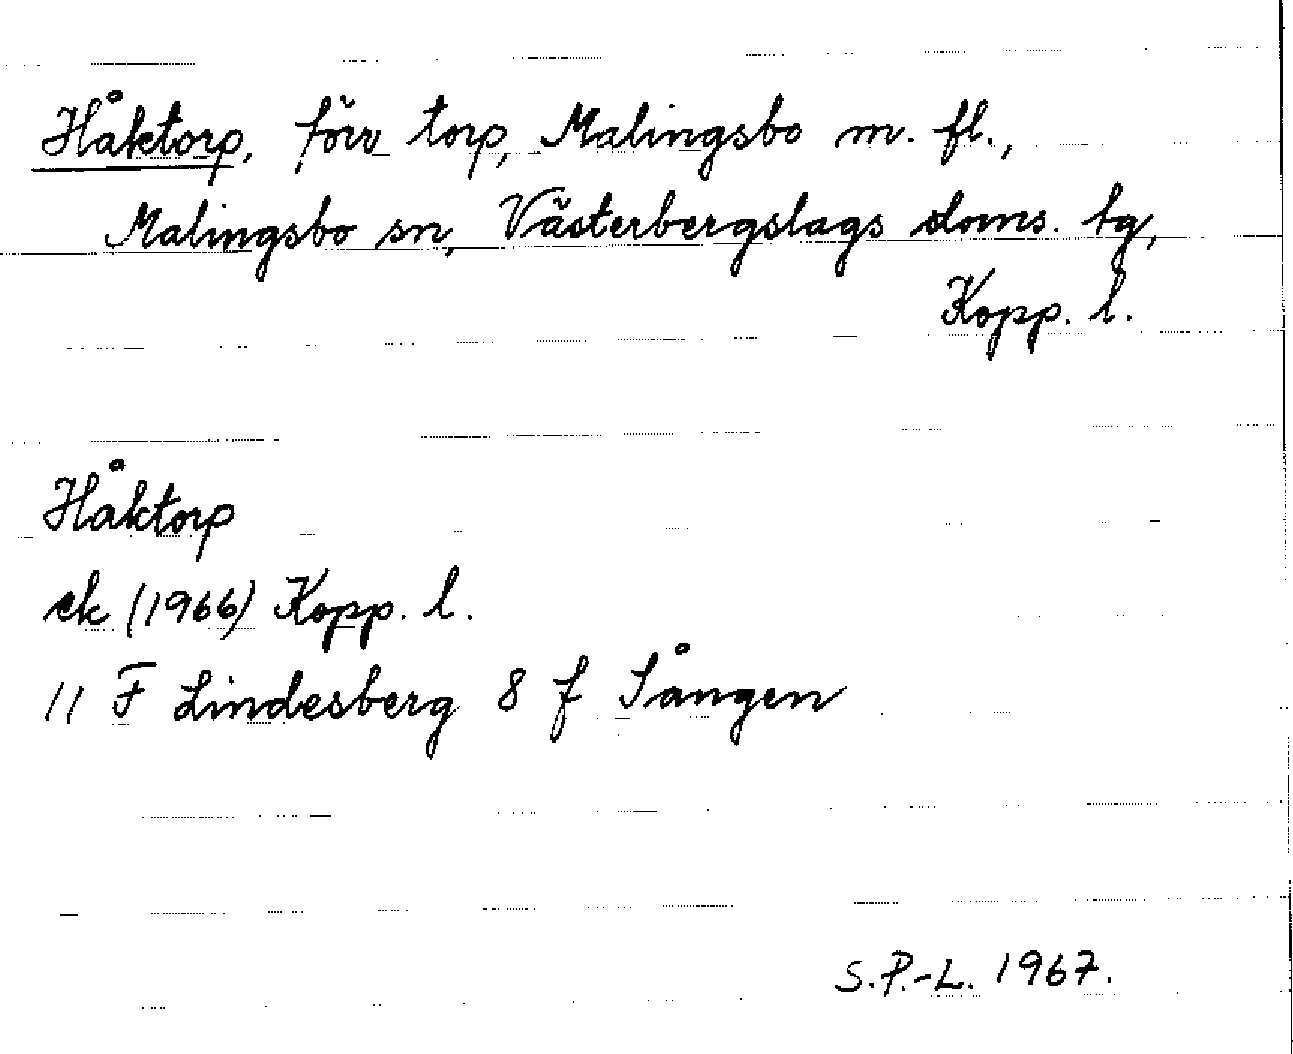 Håktorp, förv torp, Malingsbo m. fl.,
Malingsbo sn, Västerbergslags doms. tg,
Kopp. l.
Håktorp
ek (1966) Kopp. l.
11 F Lindesberg 8 f Sången
S.P.-L. 1967.